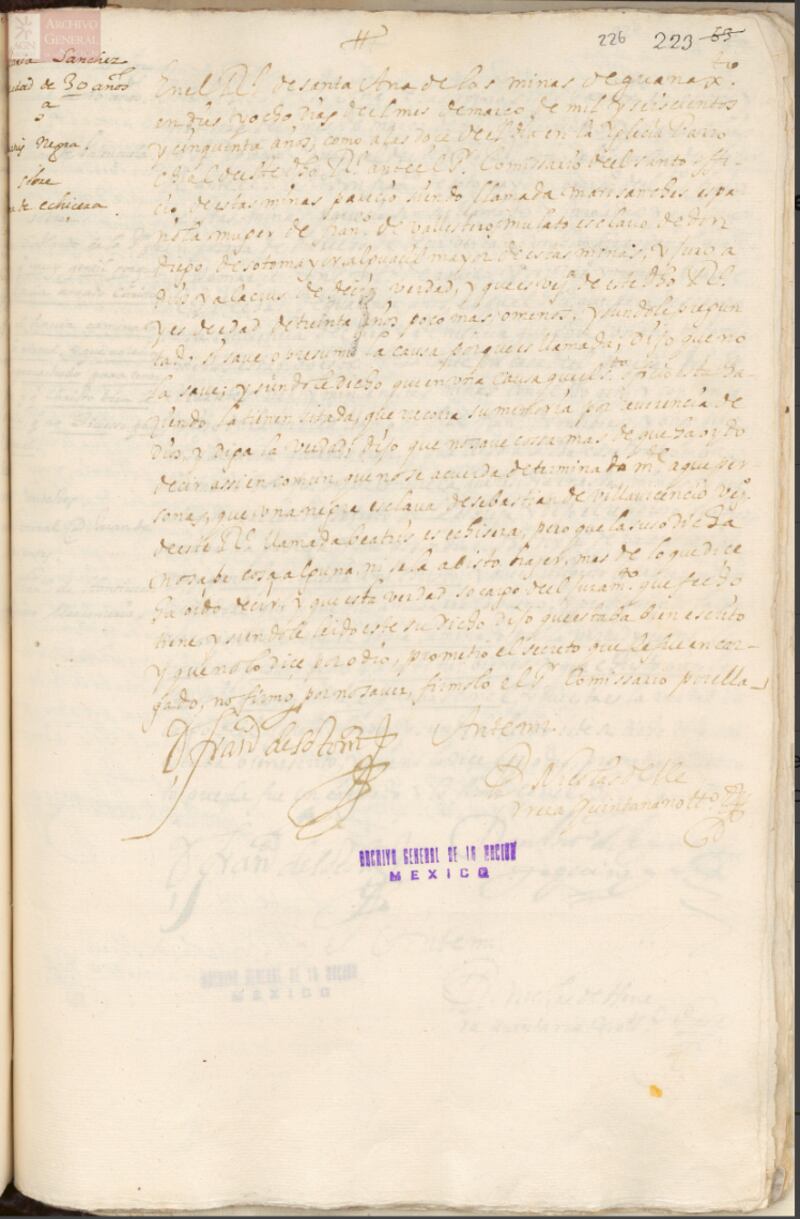 ARCHIVO
GENERAL
AGN
226 223 65
Sanchez
edad de 30 años
a
Negra.
sobre
de echicera
En el Rl. de santa Ana de las minas de guanaxto.
en dies y ocho dias del mes de março de mil y seiscientos
y cinquenta años, como a las doce del dia en la Yglecia Parro
chial deste dho Rl. ante el Pe. Comissario del santo offi-
cio destas minas pareçio siendo llamada mari sanches espa
ñola muger de franco. de vallestero mulato esclavo de don
diego de sotomayor alguacil mayor de estas minas, y juro a
dios y a la crus de decir verdad, y que es vesa. de este dho Rl.
y es de edad de treinta años poco mas, o menos, y siendole pregun
tado, si save o presume la causa porque es llamada; dijo que no
la save; y siendole dicho que en una causa que el sto. officio esta ha-
ziendo la tienen sitada, que recora su memoria por reverencia de
dios, y diga la verdad; dijo que no save cosa mas de que ha oydo
decir assi en comun, que no se acuerda determinadamte. a que per-
sonas, que una negra esclava de sebastian de Villavicencio veso.
deste Rl. llamada beatris es echisera, pero que la suso dicha
no sabe cosa alguna, ni se la a bisto haser, mas de lo que dice
ha oido decir, y questa verdad so cargo del juramto. que fecho
tiene, y siendole leido este su dicho dijo que estaba bien escrito
y que no lo dice por odio, prometio el secreto que le fue encar-
gado, no firmo, por no saver, firmolo el Pe. Comissario por ella
D franco de sotomr
Ante mi
quintana notto.
ARCHIVO GENERAL DE LA NACION
MEXICO